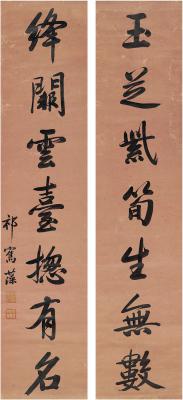 玉芝紫筍生無數
絳闕雲臺揔有名
祁寯藻